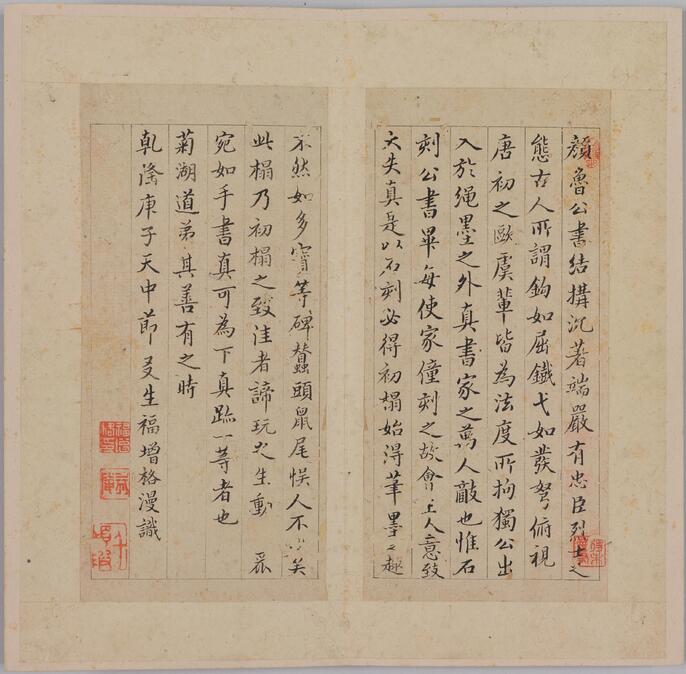 顔魯公書結搆沉著端嚴有忠臣烈士之
態古人所謂鉤如屈鐵弋如發弩俯視
唐初之歐虞輩皆為法度所拘獨公出
入於繩墨之外真書家之萬人敵也惟石
刻公書畢每使家僮刻之故會主人意致
大失真是以石刻必得初榻始得筆墨之趣
不然如多寶等碑蠶頭鼠尾悮人不少矣
此榻乃初榻之致佳者諦玩之生動
宛如手書真可為下真跡一等者也
菊湖道弟其善有之時
乾隆庚子天中節友生福增格漫識